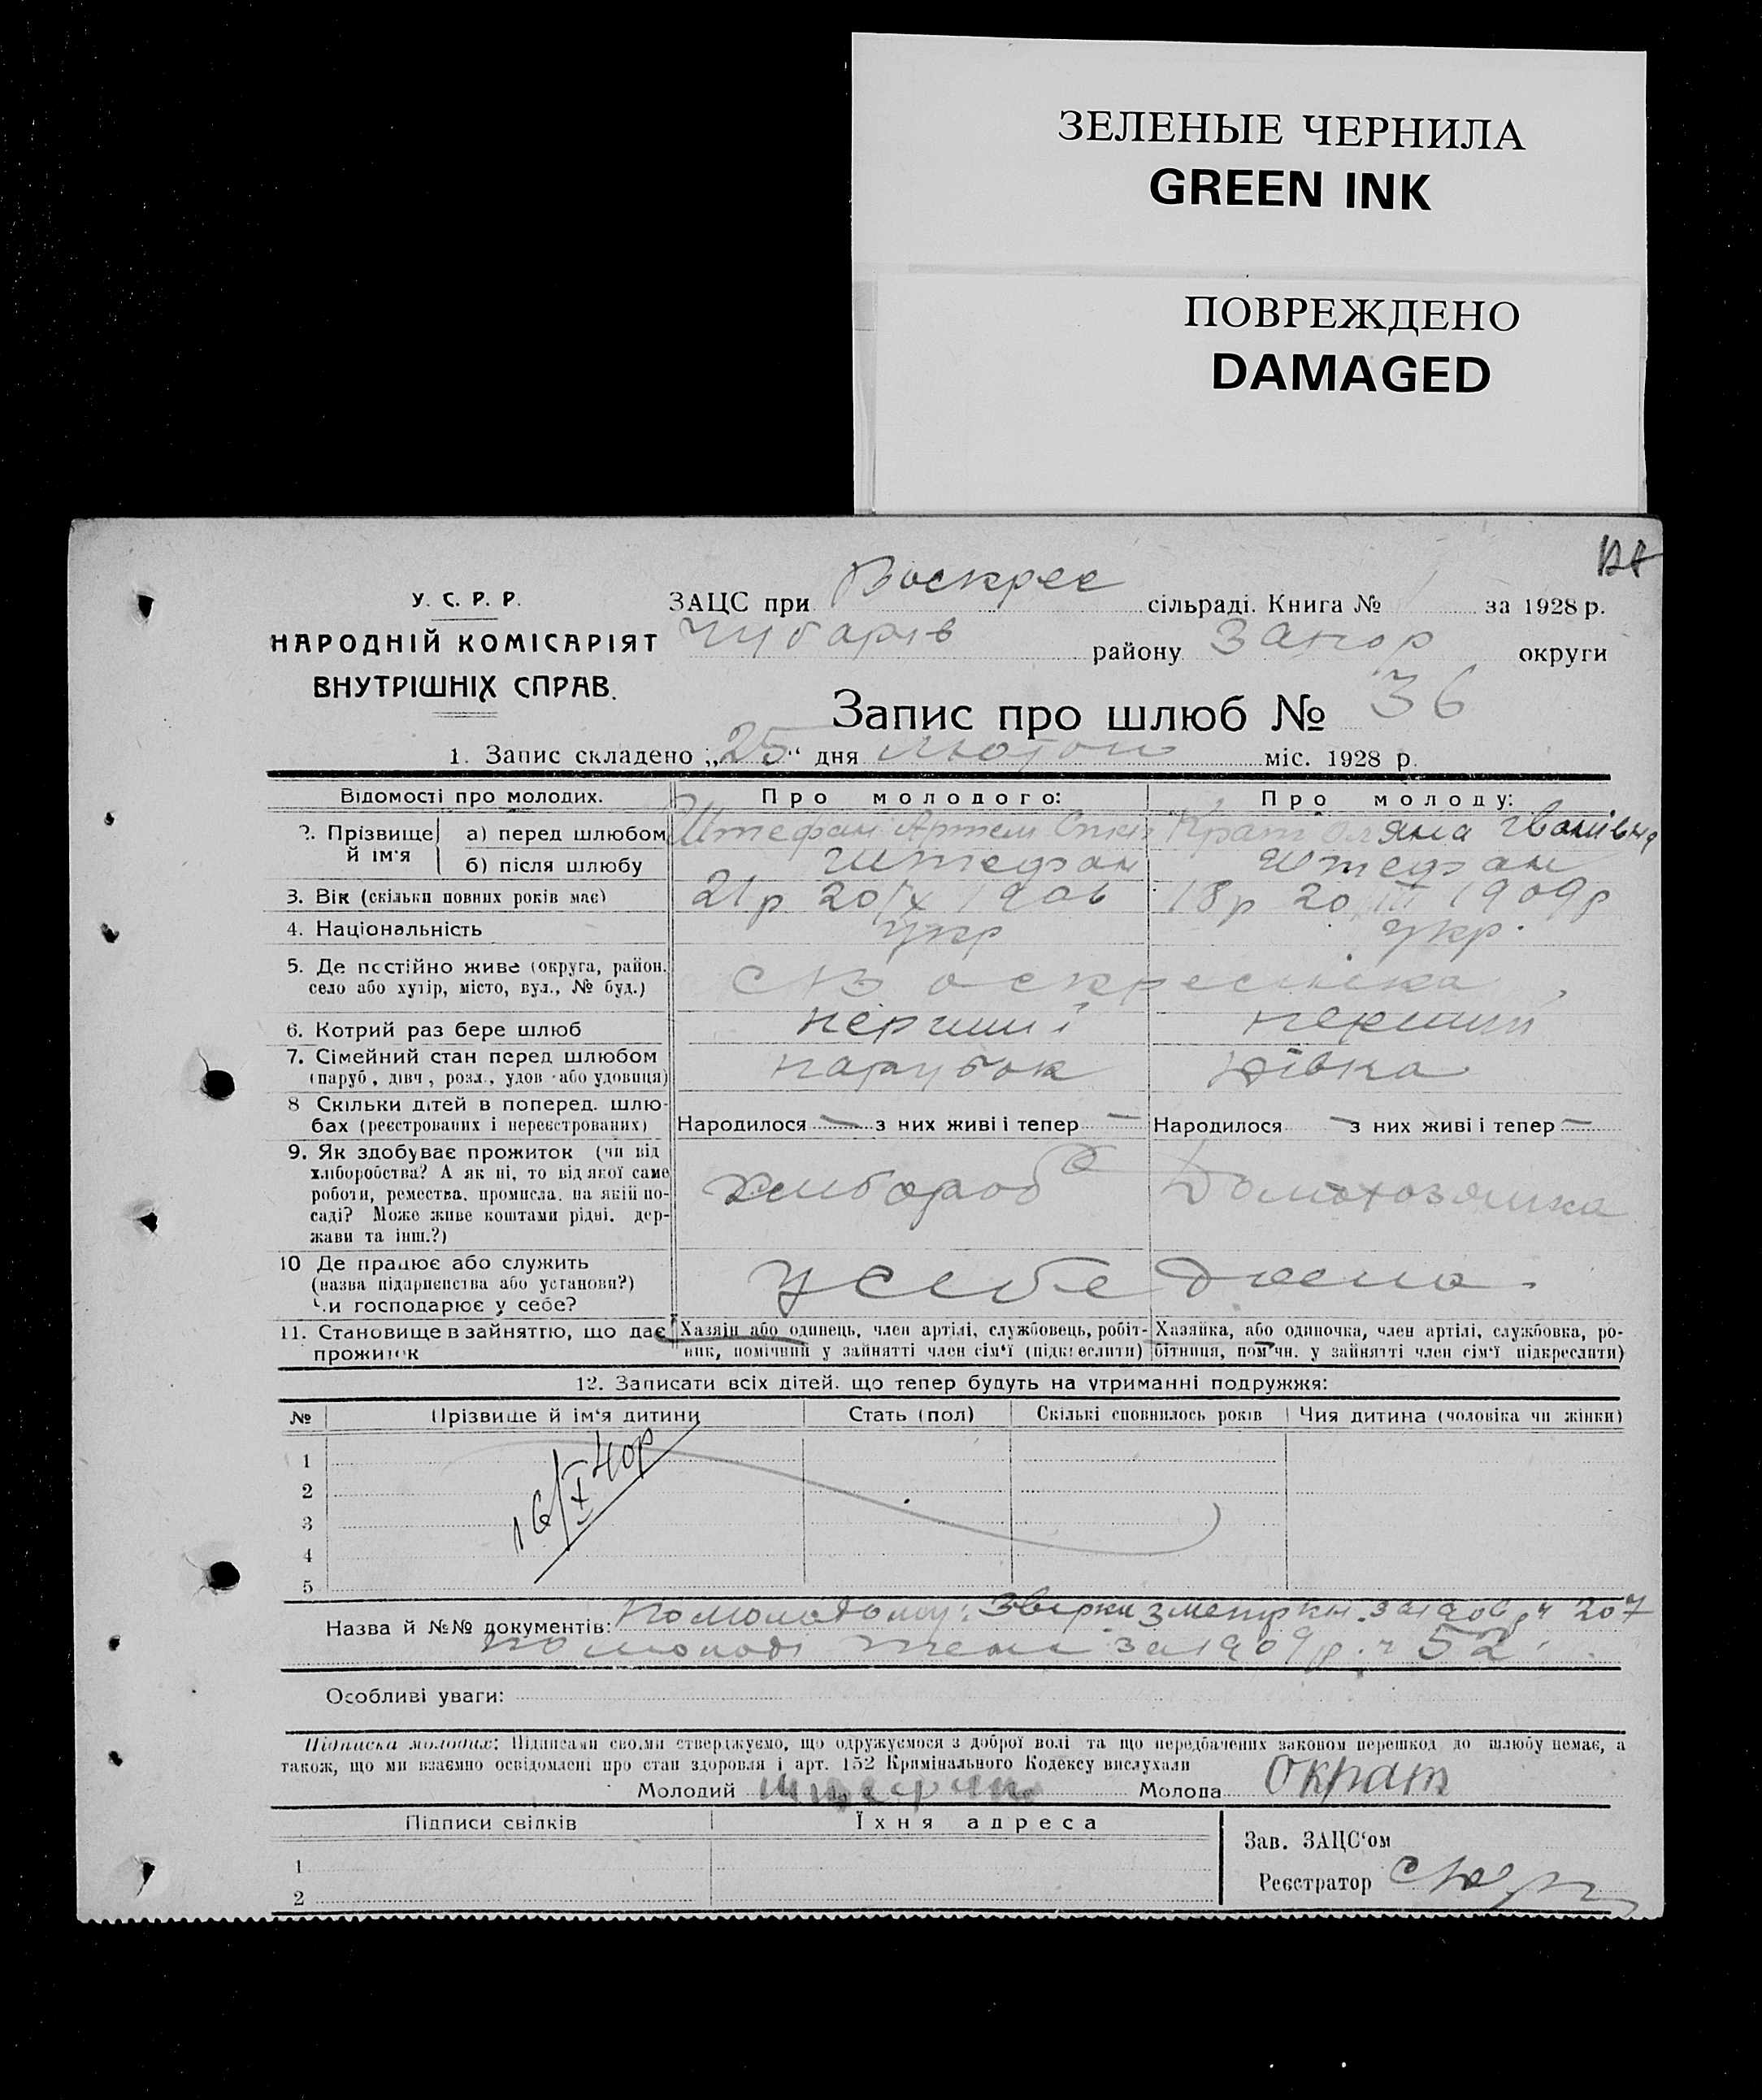 ЗЕЛЕНЫЕ ЧЕРНИЛА
GREEN INK
ПОВРЕЖДЕНО
DAMAGED
У. С. Р. Р.
НАРОДНІЙ КОМІСАРІЯТ
ВНУТРІШНІХ СПРАВ.
ЗАЦС при Воскрес сільраді. Книга № за 1928 р.
Чубарів району Запор округи
Запис про шлюб № 36
1. Запис складено „25“ дня лютого міс. 1928 р.
Відомості про молодих. Про молодого: Про молоду:
2. Прізвище й ім'я а) перед шлюбом Штефан Артем Кратт Іванівна
б) після шлюбу Штефан Штефан
3. Вік (скільки повних років має) 21 р 20/X 1906 18 р 20 III 1909 р
4. Національність укр укр.
5. Де постійно живе (округа, район, село або хутір, місто, вул., № буд.) с Воскресінка
6. Котрий раз бере шлюб перший перший
7. Сімейний стан перед шлюбом (паруб., дівч., розл., удов. або удовиця) парубок дівка
8 Скільки дітей в поперед. шлюбах (реєстрованих і нереєстрованих) Народилося — з них живі і тепер — Народилося — з них живі і тепер —
9. Як здобуває прожиток (чи від хліборобства? А як ні, то від якої саме роботи, ремества, промисла, на якій посаді? Може живе коштами рідні, держави та інш.?) хлибороб Домохозяйка
10 Де працює або служить (назва підприємства або установи?) Чи господарює у себе? У себе дома.
11. Становище в зайняттю, що дає прожиток Хазяїн або одинець, член артілі, службовець, робітник, помічний у зайнятті член сім'ї (підкреслити) Хазяйка, або одиночка, член артілі, службовка, робітниця, помічн. у зайнятті член сім'ї підкреслити)
12. Записати всіх дітей, що тепер будуть на утриманні подружжя:
№ Прізвище й ім'я дитини Стать (пол) Скількі сповнилось років Чия дитина (чоловіка чи жінки)
1
2
3
4
5
16/X 40р
Назва й №№ документів: по молодому: Звірки з метр кн. за 1906 р ч 207
по молоді теж за 1909 р. ч 52
Особливі уваги:
Підписка молодих: Підписами своїми стверджуємо, що одружуємося з доброї волі та що передбачених законом перешкод до шлюбу немає, а
також, що ми взаємно освідомлені про стан здоровля і арт. 152 Кримінального Кодексу вислухали
Молодий Штефан Молода Ократт
Підписи свілків Їхня адреса
Зав. ЗАЦС'ом
1
Реєстратор
2